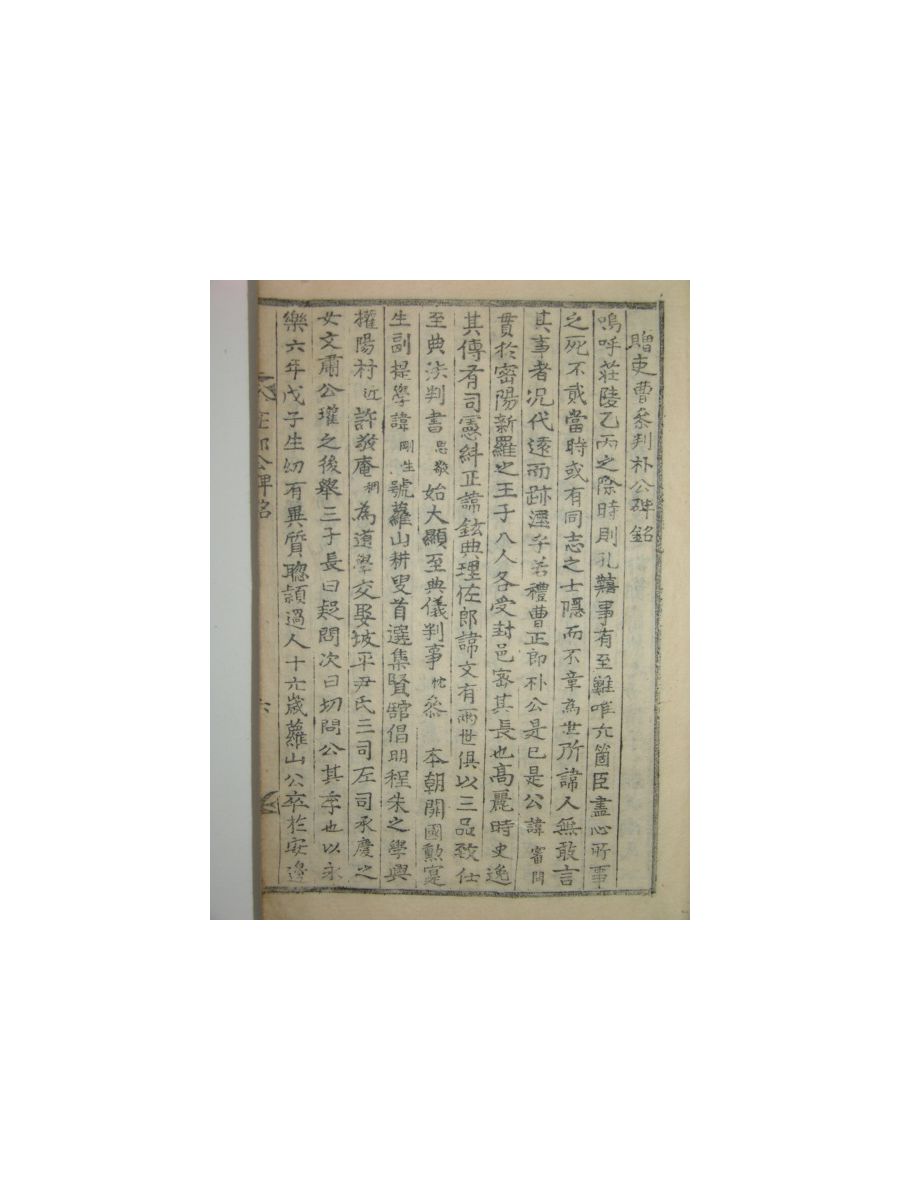 贈吏曹參判朴公碑銘
嗚呼莊陵乙丙之除時則孔艱事有至難唯六箇臣盡心所事
之死不貳當時或有同志之士隱而不章為世所諱人無敢言
其事者况代遠而跡湮乎若禮曹正郎朴公是已是公諱審問
貫於密陽新羅之王子八人各受封邑密其長也高麗時史逸
其傳有司憲糾正諱鉉典理佐郎諱文有兩世俱以三品致仕
至典法判書思敬始大顯至典儀判事忱叅 本朝開國勳寔
生副提學諱剛生號蘿山耕叟首選集賢舘倡明程朱之學與
權陽村近許敬庵稠為道學交娶坡平尹氏三司左司承慶之
女文肅公瓘之後舉三子長曰起問次曰切問公其季也以永
樂六年戊子生幼有異質聰頴過人十六歲蘿山公卒於安邊
正郎公碑銘 六